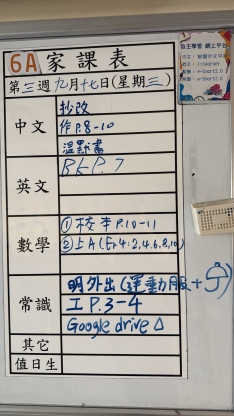 6A 家課表
第三週九月十七日(星期三)
中文
抄改
作P.8-10
溫默書
英文
BkP.7
數學
①校本P.10-11
②上A(Ex4:2,4,6,8,10)
常識
明外出(運動服+
工P.3-4
Google drive △
其它
值日生
自主學習 網上平台